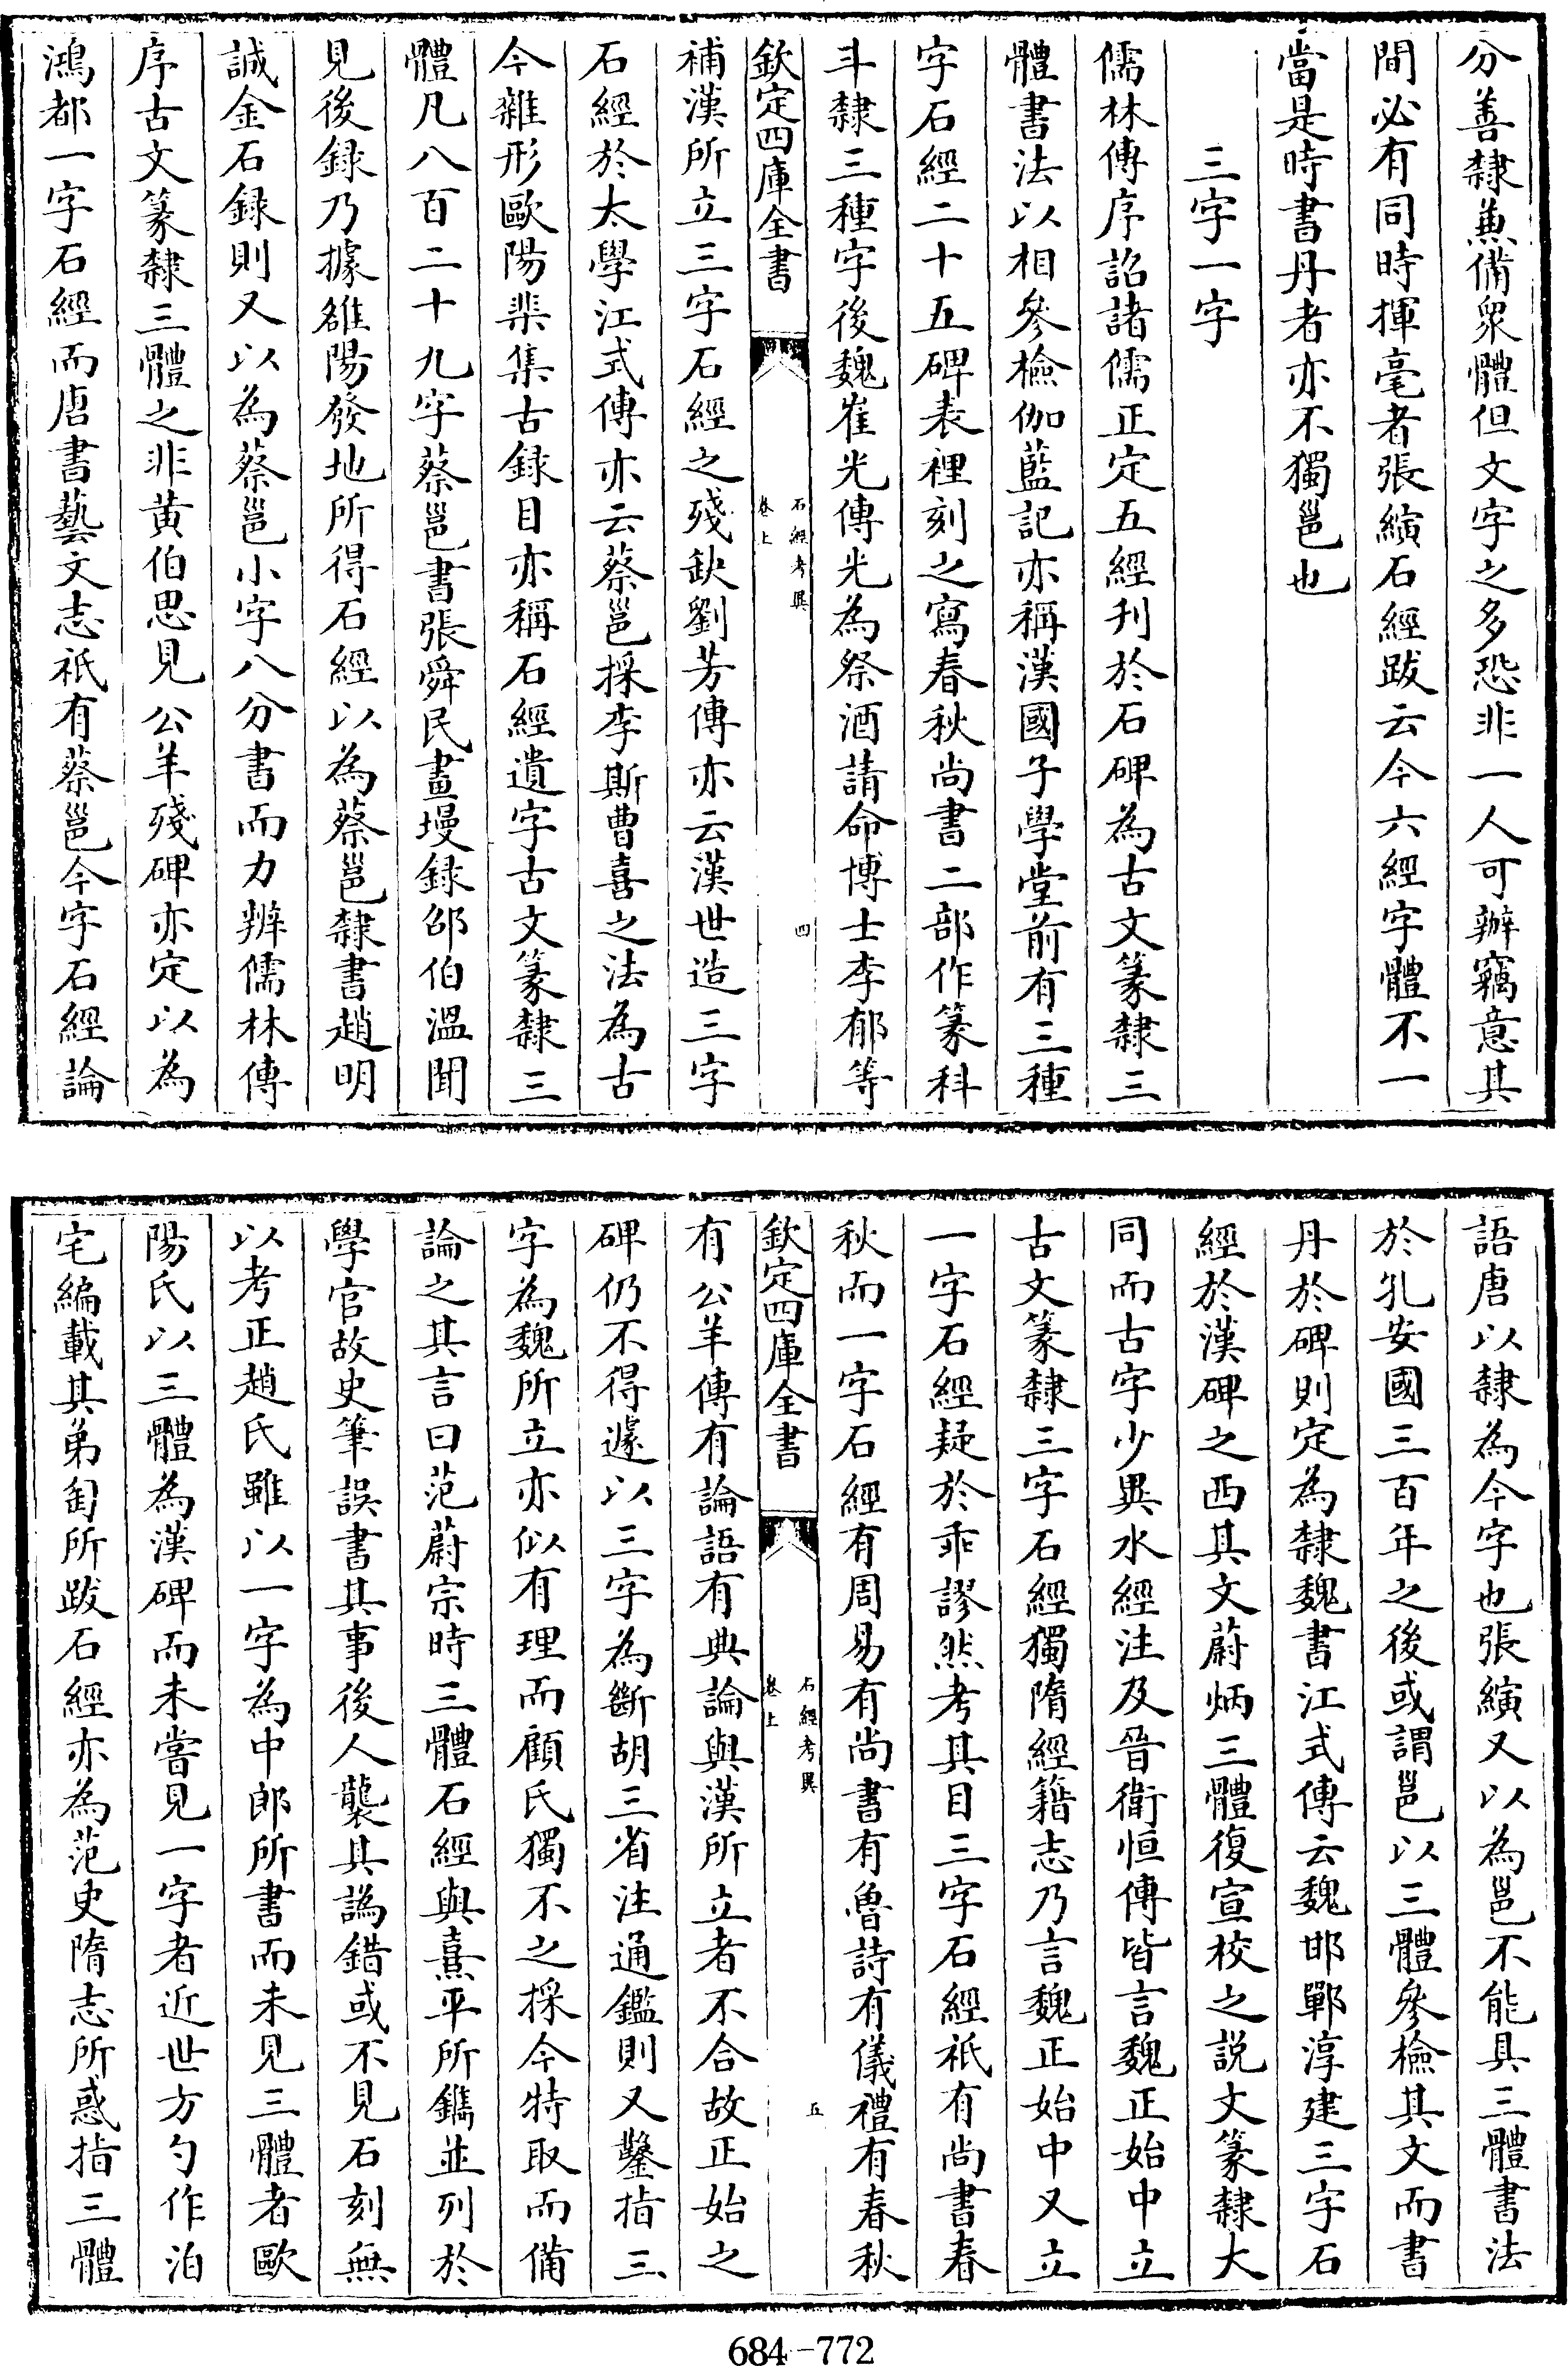 分善隸兼備衆體但文字之多恐非一人可辦竊意其
間必有同時揮毫者張縯石經跋云今六經字體不一
當是時書丹者亦不獨邕也
三字一字
儒林傳序詔諸儒正定五經刋於石碑為古文篆隸三
體書法以相參檢伽藍記亦稱漢國子學堂前有三種
字石經二十五碑表裡刻之寫春秋尚書二部作篆科
斗隸三種字後魏崔光傳光為祭酒請命博士李郁等
欽定四庫全書
石經考異
卷上
四
補漢所立三字石經之殘缺劉芳傳亦云漢世造三字
石經於太學江式傳亦云蔡邕採李斯曹喜之法為古
今雜形歐陽棐集古録目亦稱石經遺字古文篆隸三
體凡八百二十九字蔡邕書張舜民畫墁録邵伯溫聞
見後録乃據雒陽發地所得石經以為蔡邕隸書趙明
誠金石録則又以為蔡邕小字八分書而力辨儒林傳
序古文篆隸三體之非黄伯思見公羊殘碑亦定以為
鴻都一字石經而唐書藝文志祇有蔡邕今字石經論
語唐以隸為今字也張縯又以為邕不能具三體書法
於孔安國三百年之後或謂邕以三體參檢其文而書
丹於碑則定為隸魏書江式傳云魏邯鄲淳建三字石
經於漢碑之西其文蔚炳三體復宣校之説文篆隸大
同而古字少異水經注及晉衛恒傳皆言魏正始中立
古文篆隸三字石經獨隋經籍志乃言魏正始中又立
一字石經疑於乖謬然考其目三字石經祇有尚書春
秋而一字石經有周易有尚書有魯詩有儀禮有春秋
欽定四庫全書
石經考異
卷上
五
有公羊傳有論語有典論與漢所立者不合故正始之
碑仍不得遽以三字為斷胡三省注通鑑則又鑿指三
字為魏所立亦似有理而顧氏獨不之採今特取而備
論之其言曰范蔚宗時三體石經與熹平所鐫並列於
學官故史筆誤書其事後人襲其譌錯或不見石刻無
以考正趙氏雖以一字為中郎所書而未見三體者歐
陽氏以三體為漢碑而未嘗見一字者近世方勺作泊
宅編載其弟匋所跋石經亦為范史隋志所惑指三體
684-772